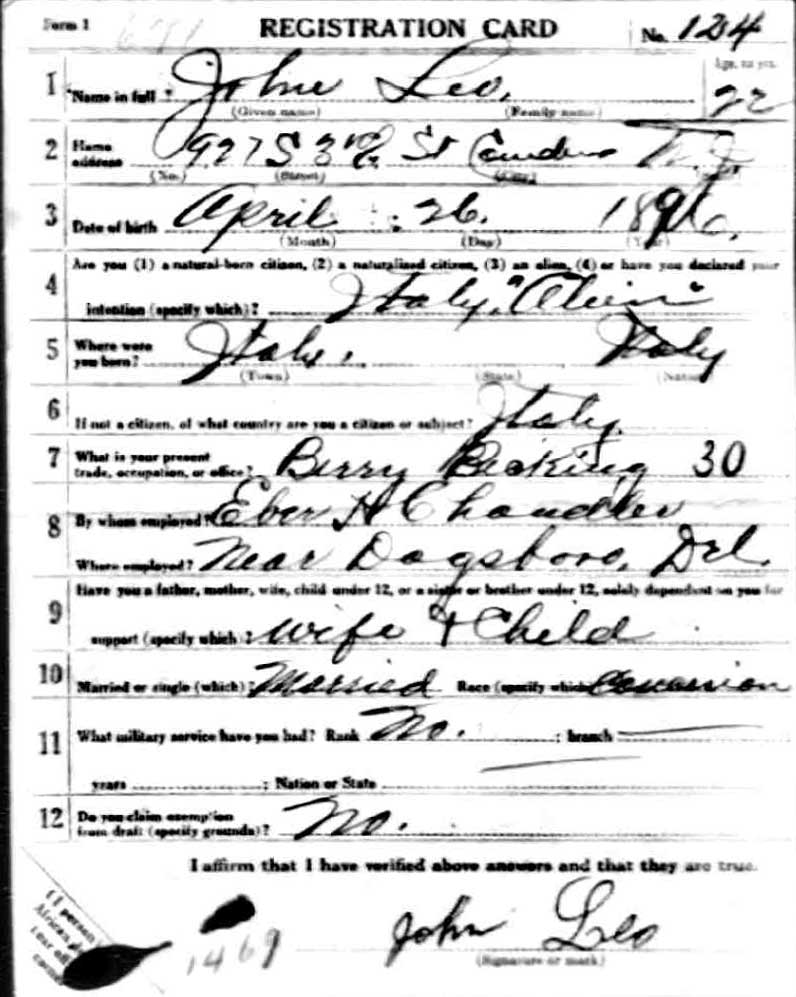 Form 1
REGISTRATION CARD No. 124
1 Name in full John Leo. Age, in yrs. 22
(Given name) (Family name)
2 Home address 927 S 3rd St Camden N.J.
(No.) (Street) (City)
3 Date of birth April 26. 1896.
(Month) (Day) (Year)
Are you (1) a natural-born citizen, (2) a naturalized citizen, (3) an alien, (4) or have you declared your
4 intention (specify which)? Italy, "Alien"
5 Where were you born? Italy. Italy
(Town) (State) (Nation)
6 If not a citizen, of what country are you a citizen or subject? Italy.
7 What is your present trade, occupation, or office? Berry Picking 30
8 By whom employed? Eber H Chandler
Where employed? Near Dagsboro, Del.
Have you a father, mother, wife, child under 12, or a sister or brother under 12, solely dependent on you for
9 support (specify which)? Wife & Child
10 Married or single (which)? Married Race (specify which)? Caucasion
11 What military service have you had? Rank No. ; branch
years ; Nation or State
12 Do you claim exemption from draft (specify grounds)? No.
I affirm that I have verified above answers and that they are true.
If person
African
tear off
corner
1469
John Leo
(Signature or mark)